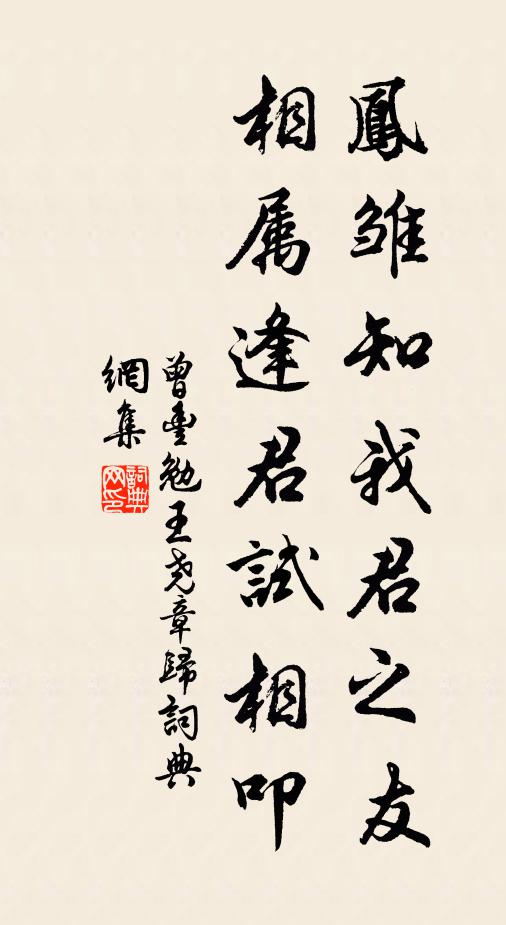 鳳雏知我君之友
相属逢君試相叩
曾豊勉王尧章歸詞典
網集
詞典
网印